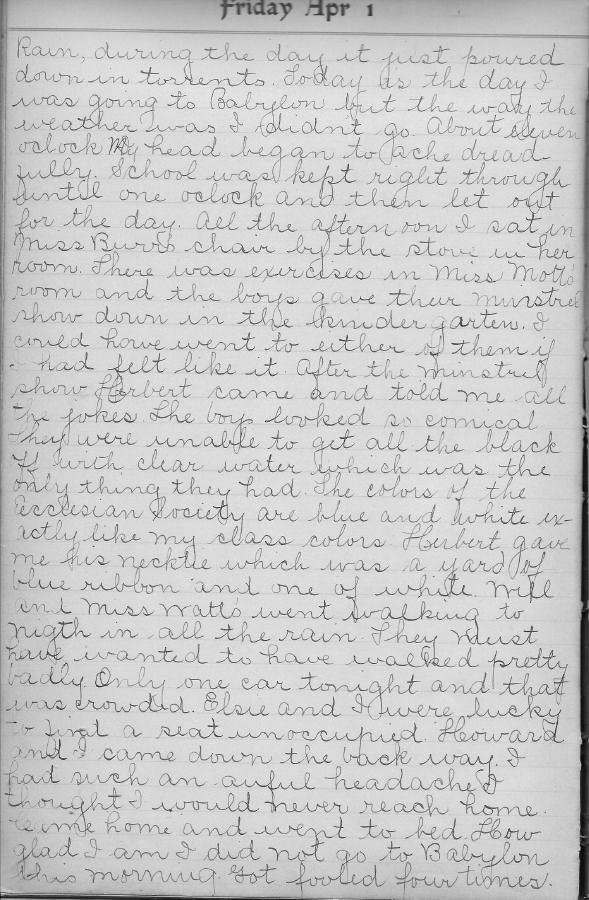 Friday Apr 1
Rain, during the day it just poured
down in torrents. Today is the day I
was going to Babylon but the way the
weather was I didn't go. About eleven
oclock My head began to ache dread-
fully. School was kept right through
until one oclock and then let out
for the day. All the afternoon I sat in
Miss Burr's chair by the stove in her
room. There was exercises in Miss Motts
room and the boys gave their minstrel
show down in the kindergarten. I
could have went to either of them if
I had felt like it. After the minstrel
show Herbert came and told me all
the jokes. The boys looked so comical
They were unable to get all the black
off with clear water which was the
only thing they had. The colors of the
Ecclesian Society are blue and white ex-
actly like my class colors. Herbert gave
me his necktie which was a yard of
blue ribbon and one of white. Will
and Miss Watts went walking to
nigth in all the rain. They must
have wanted to have walked pretty
badly. Only one car tonight and that
was crowded. Elsie and I were lucky
to find a seat unoccupied. Howard
and I came down the back way. I
had such an auful headache I
thought I would never reach home.
Came home and went to bed. How
glad I am I did not go to Babylon
this morning. Got fooled four times.